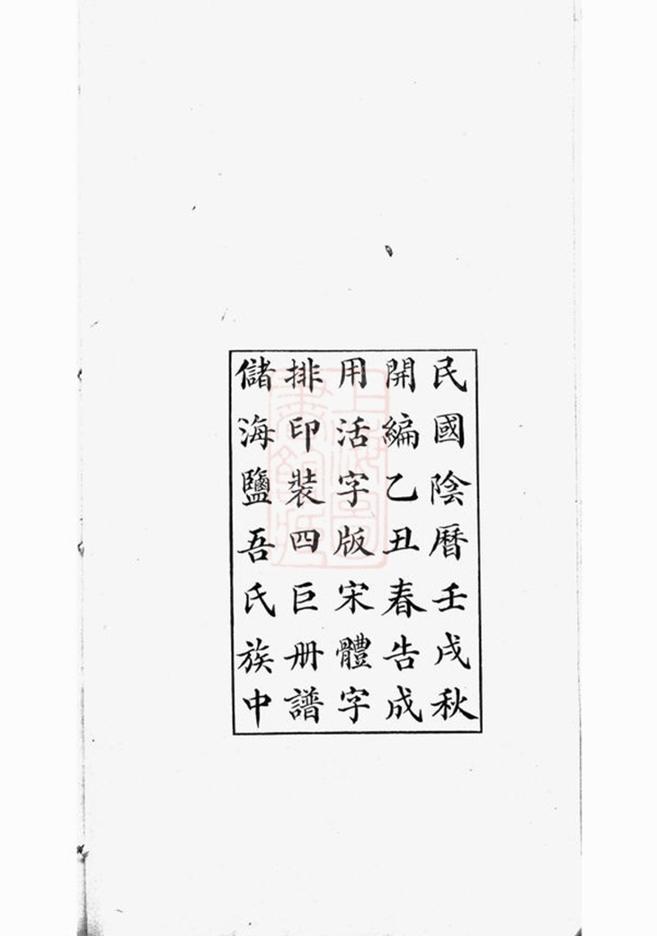 民國陰曆壬戌秋
開編乙丑春告成
用活字版宋體字
排印裝四巨册譜
儲海鹽吾氏族中
上海圖書館藏